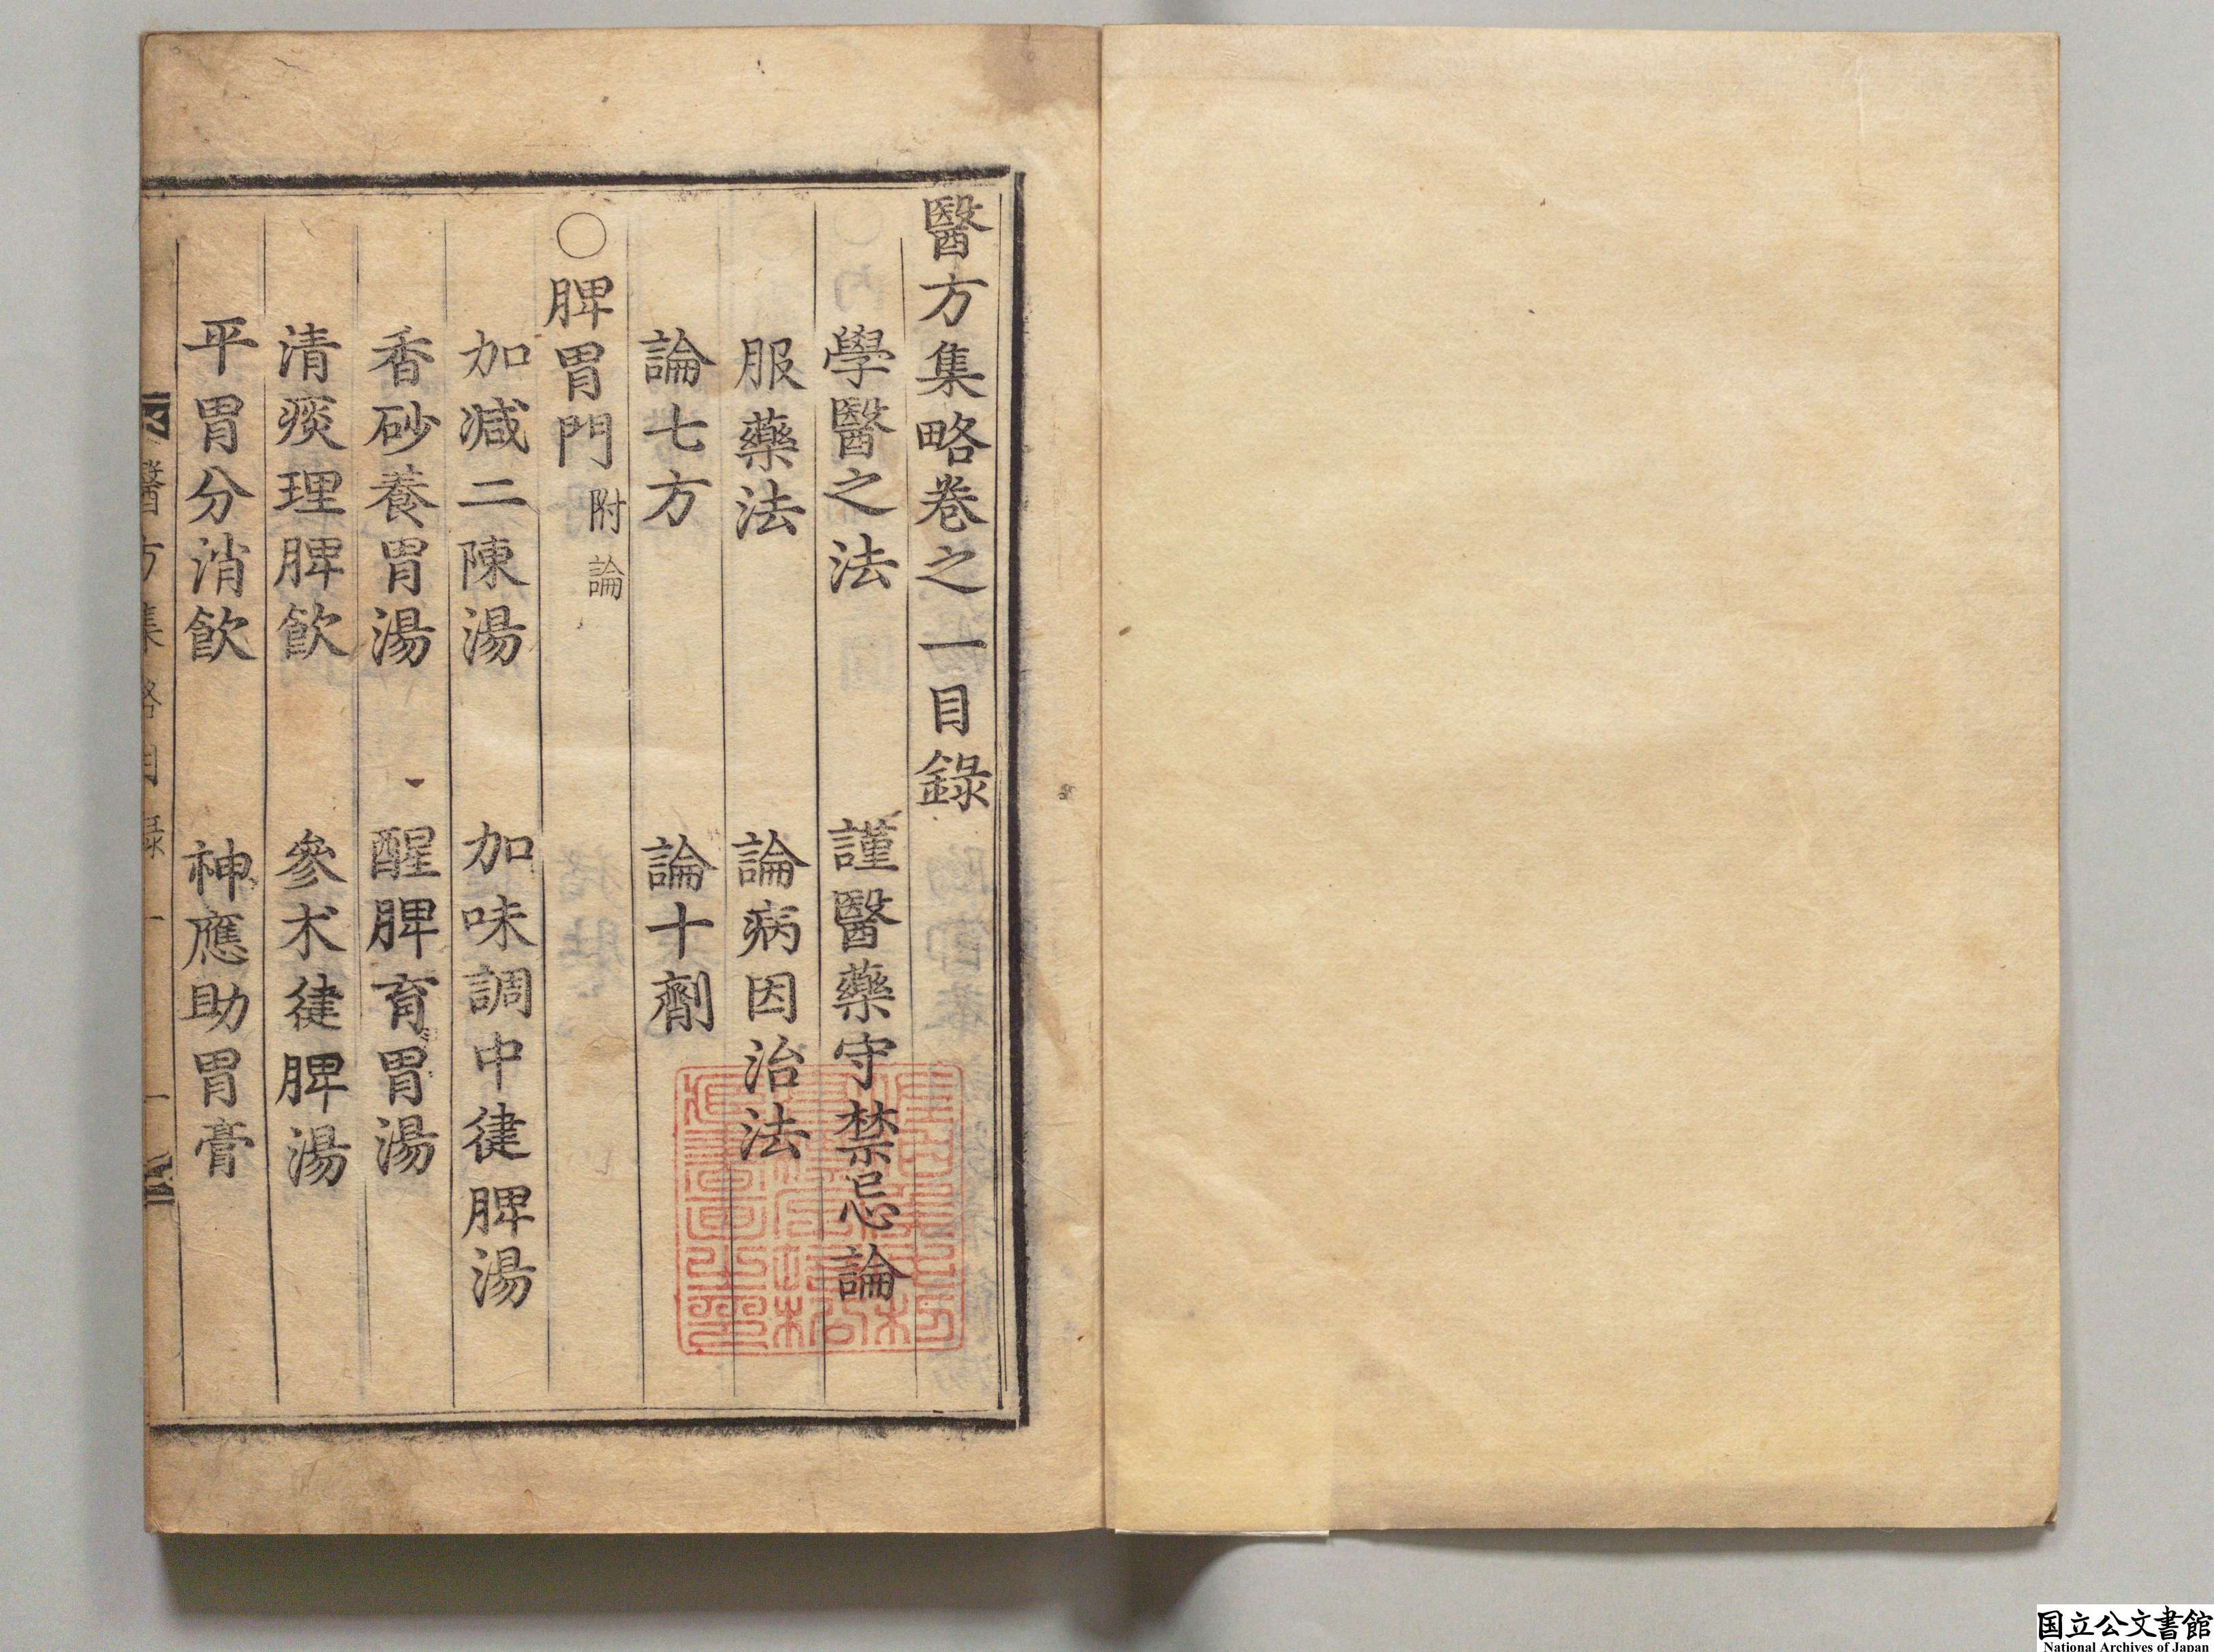 醫方集略卷之一目錄
學醫之法　謹醫藥守禁忌論
服藥法　論病因治法
論七方　論十劑
○脾胃門 附論
加減二陳湯　加味調中健脾湯
香砂養胃湯　醒脾育胃湯
清痰理脾飲　參朮健脾湯
平胃分消飲　神應助胃膏
醫方集略目録 一
国立公文書館
National Archives of Japan